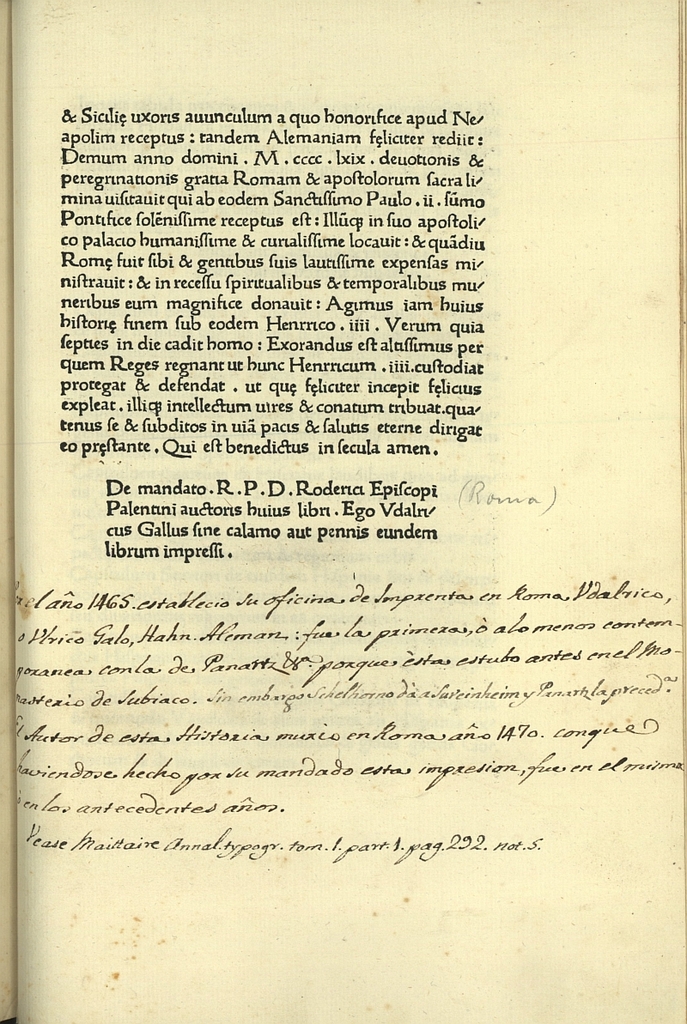 & Sicilię uxoris auunculum a quo honorifice apud Ne/
apolim receptus : tandem Alemaniam fęliciter rediit :
Demum anno domini . M . cccc . lxix . deuotionis &
peregrinationis gratia Romam & apoſtolorum ſacra li/
mina uiſitauit qui ab eodem Sanctiſſimo Paulo . ii . ſūmo
Pontifice ſolēniſſime receptus eſt : Illūq; in ſuo apoſtoli/
co palacio humaniſſime & curialiſſime locauit : & quādiu
Romę fuit ſibi & gentibus ſuis lautiſſime expenſas mi/
niſtrauit : & in receſſu ſpiritualibus & temporalibus mu/
neribus eum magnifice donauit : Agimus iam huius
hiſtorię finem ſub eodem Henrrico . iiii . Verum quia
ſepties in die cadit homo : Exorandus eſt altiſſimus per
quem Reges regnant ut hunc Henrricum . iiii. cuſtodiat
protegat & defendat . ut quę fęliciter incepit fęlicius
expleat . illiq; intellectum uires & conatum tribuat. qua/
tenus ſe & ſubditos in uiā pacis & ſalutis eterne dirigat
eo pręſtante . Qui eſt benedictus in ſecula amen .
De mandato . R . P . D . Roderici Epiſcopi
Palentini auctoris huius libri . Ego Vdalri/
cus Gallus ſine calamo aut pennis eundem
librum impreſſi .
(Roma)
el año 1465. establecio su oficina de Imprenta en Roma Vdalrico,
o Vlrico Galo, Hahn. Aleman : fue la primera, ò alo menos contem-
poranea con la de Panartz &ª. porque èsta estubo antes en el Mo-
nasterio de Subiaco. Sin embargo Schelhorno dà a Sueinheim y Panartz la preced.ª
El Autor de esta Historia murio en Roma año 1470. con que
haviendose hecho por su mandado esta impresion, fue en el mismo
ò en los antecedentes años.
Vease Maittaire Annal. typogr. tom. 1. part. 1. pag. 292. not. 5.